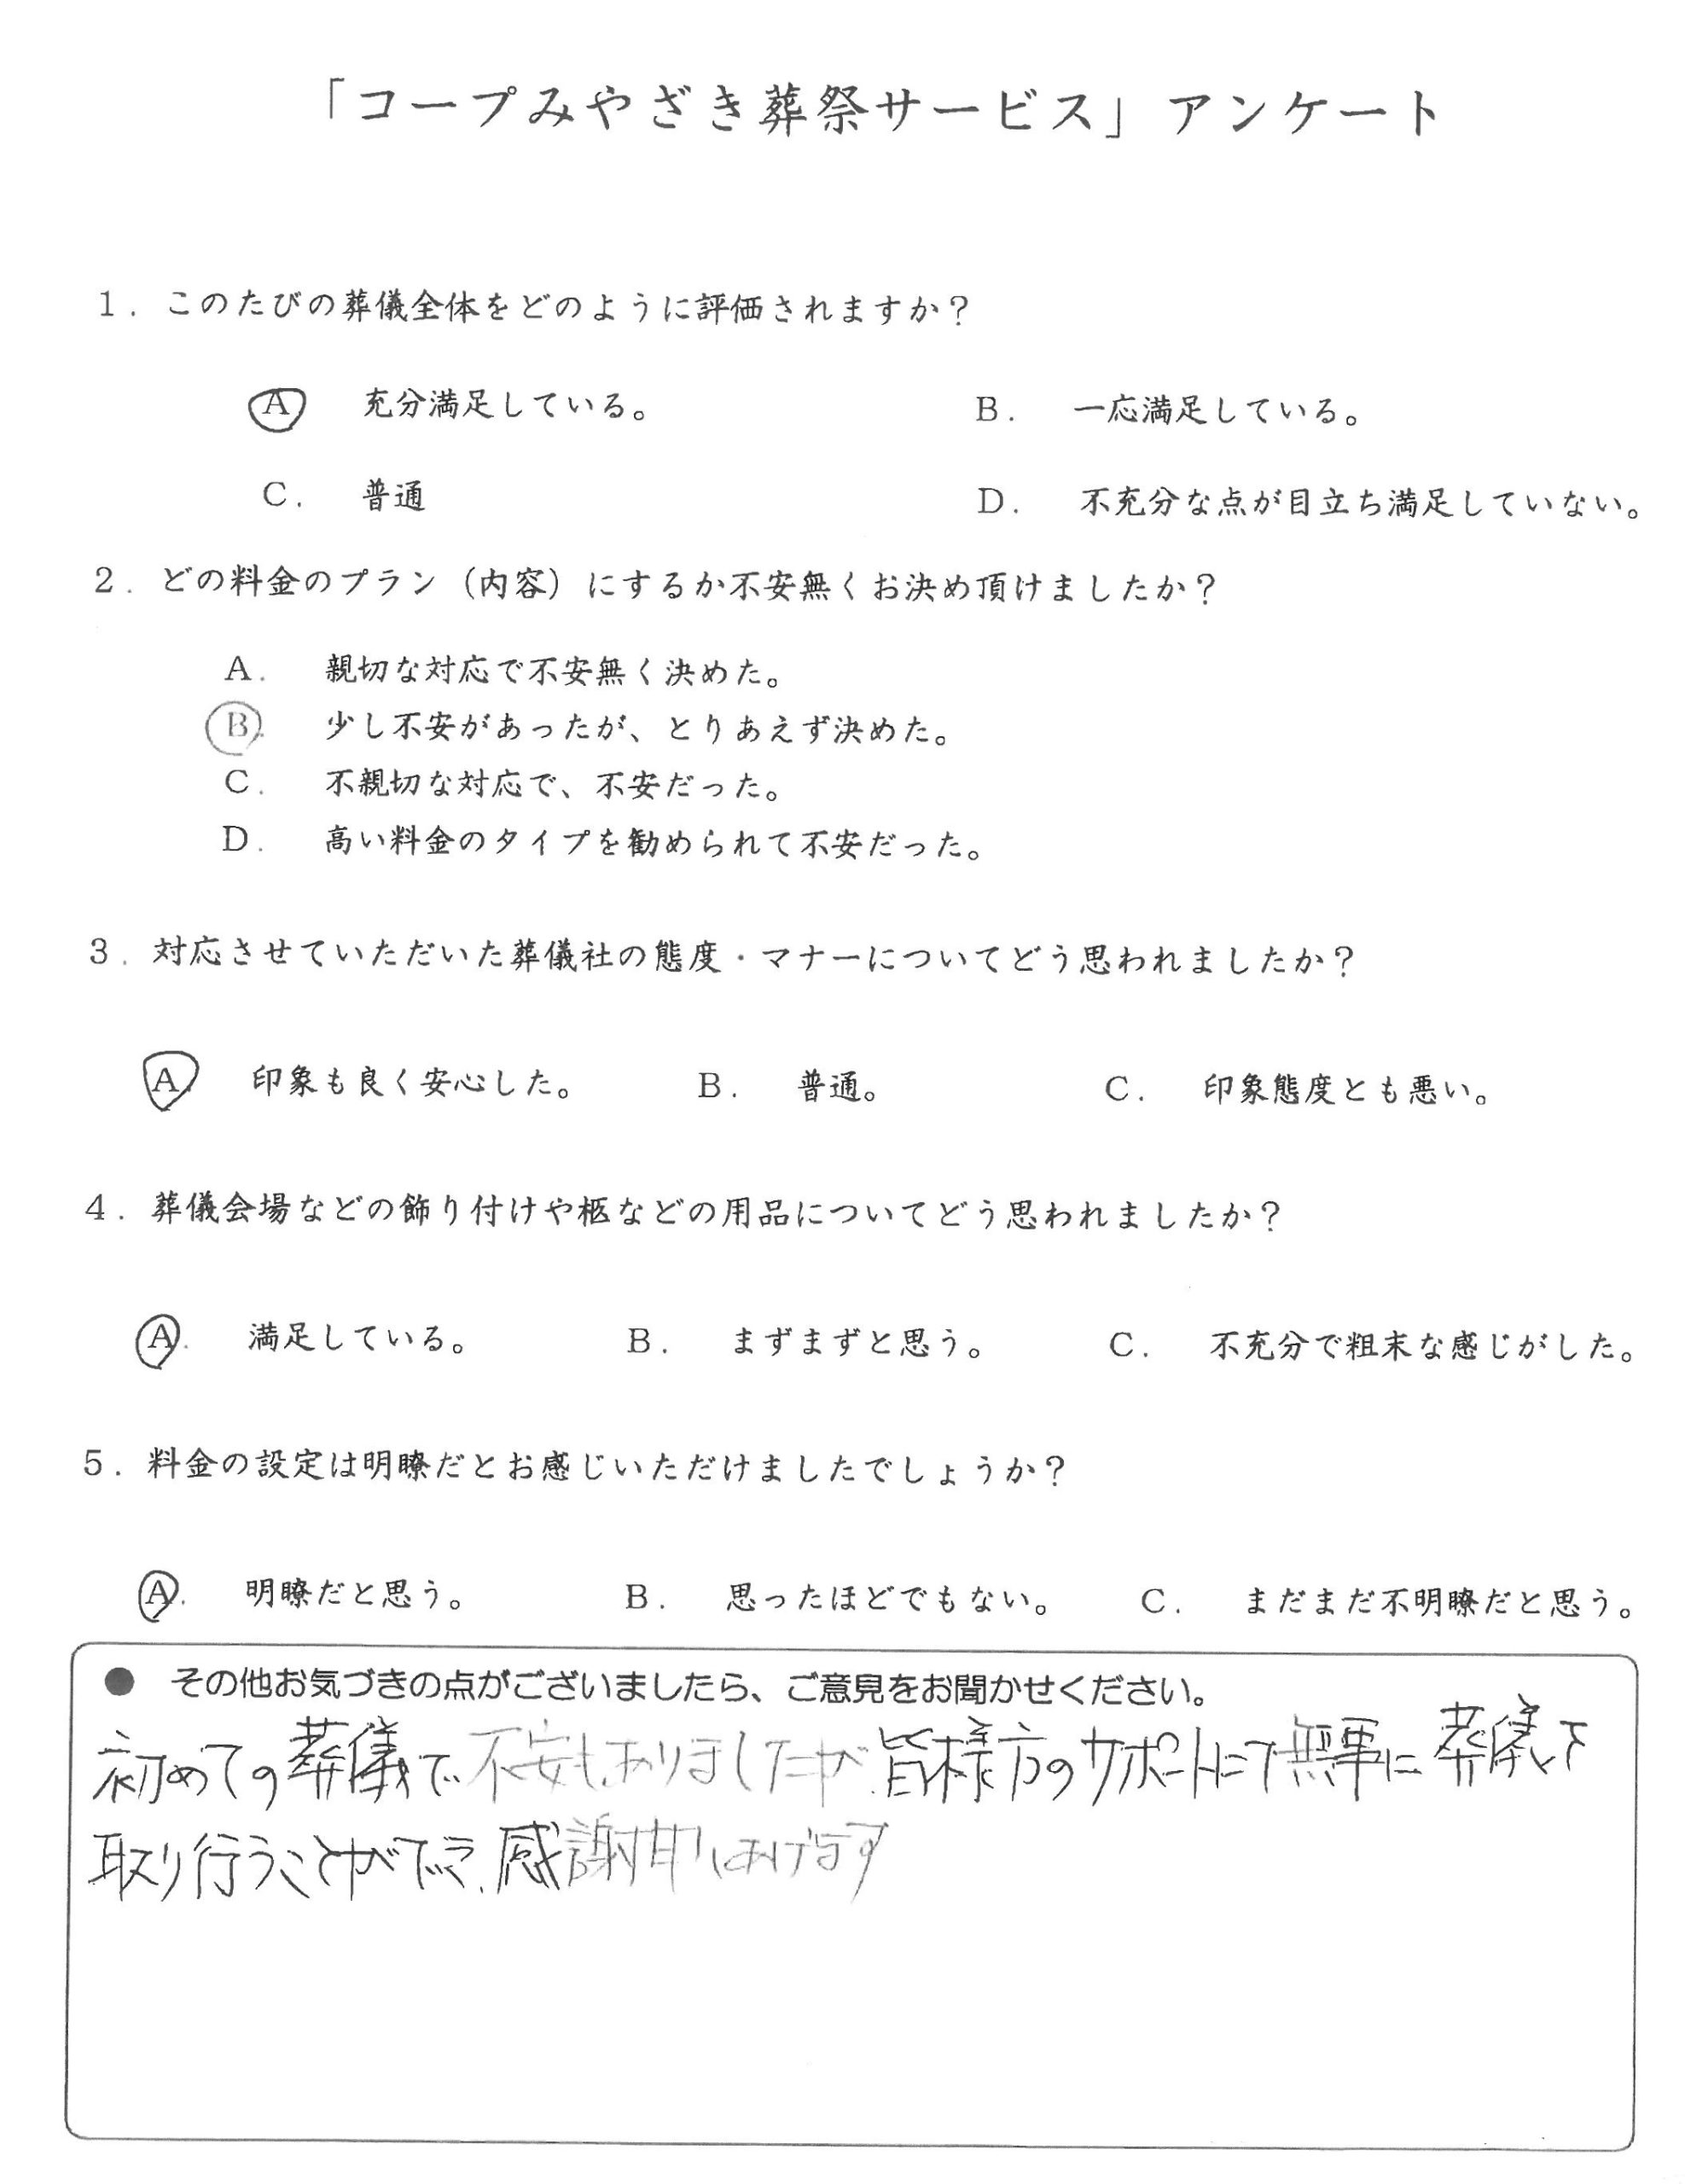 「コープみやざき葬祭サービス」アンケート
1. このたびの葬儀全体をどのように評価されますか？
A 充分満足している。 B. 一応満足している。
C. 普通 D. 不充分な点が目立ち満足していない。
2. どの料金のプラン（内容）にするか不安無くお決め頂けましたか？
A. 親切な対応で不安無く決めた。
B. 少し不安があったが、とりあえず決めた。
C. 不親切な対応で、不安だった。
D. 高い料金のタイプを勧められて不安だった。
3. 対応させていただいた葬儀社の態度・マナーについてどう思われましたか？
A. 印象も良く安心した。 B. 普通。 C. 印象態度とも悪い。
4. 葬儀会場などの飾り付けや柩などの用品についてどう思われましたか？
A. 満足している。 B. まずまずと思う。 C. 不充分で粗末な感じがした。
5. 料金の設定は明瞭だとお感じいただけましたでしょうか？
A. 明瞭だと思う。 B. 思ったほどでもない。 C. まだまだ不明瞭だと思う。
● その他お気づきの点がございましたら、ご意見をお聞かせください。
初めての葬儀で不安もありましたが、皆様方のサポートにて無事に葬儀を
取り行うことができ、感謝申しあげます